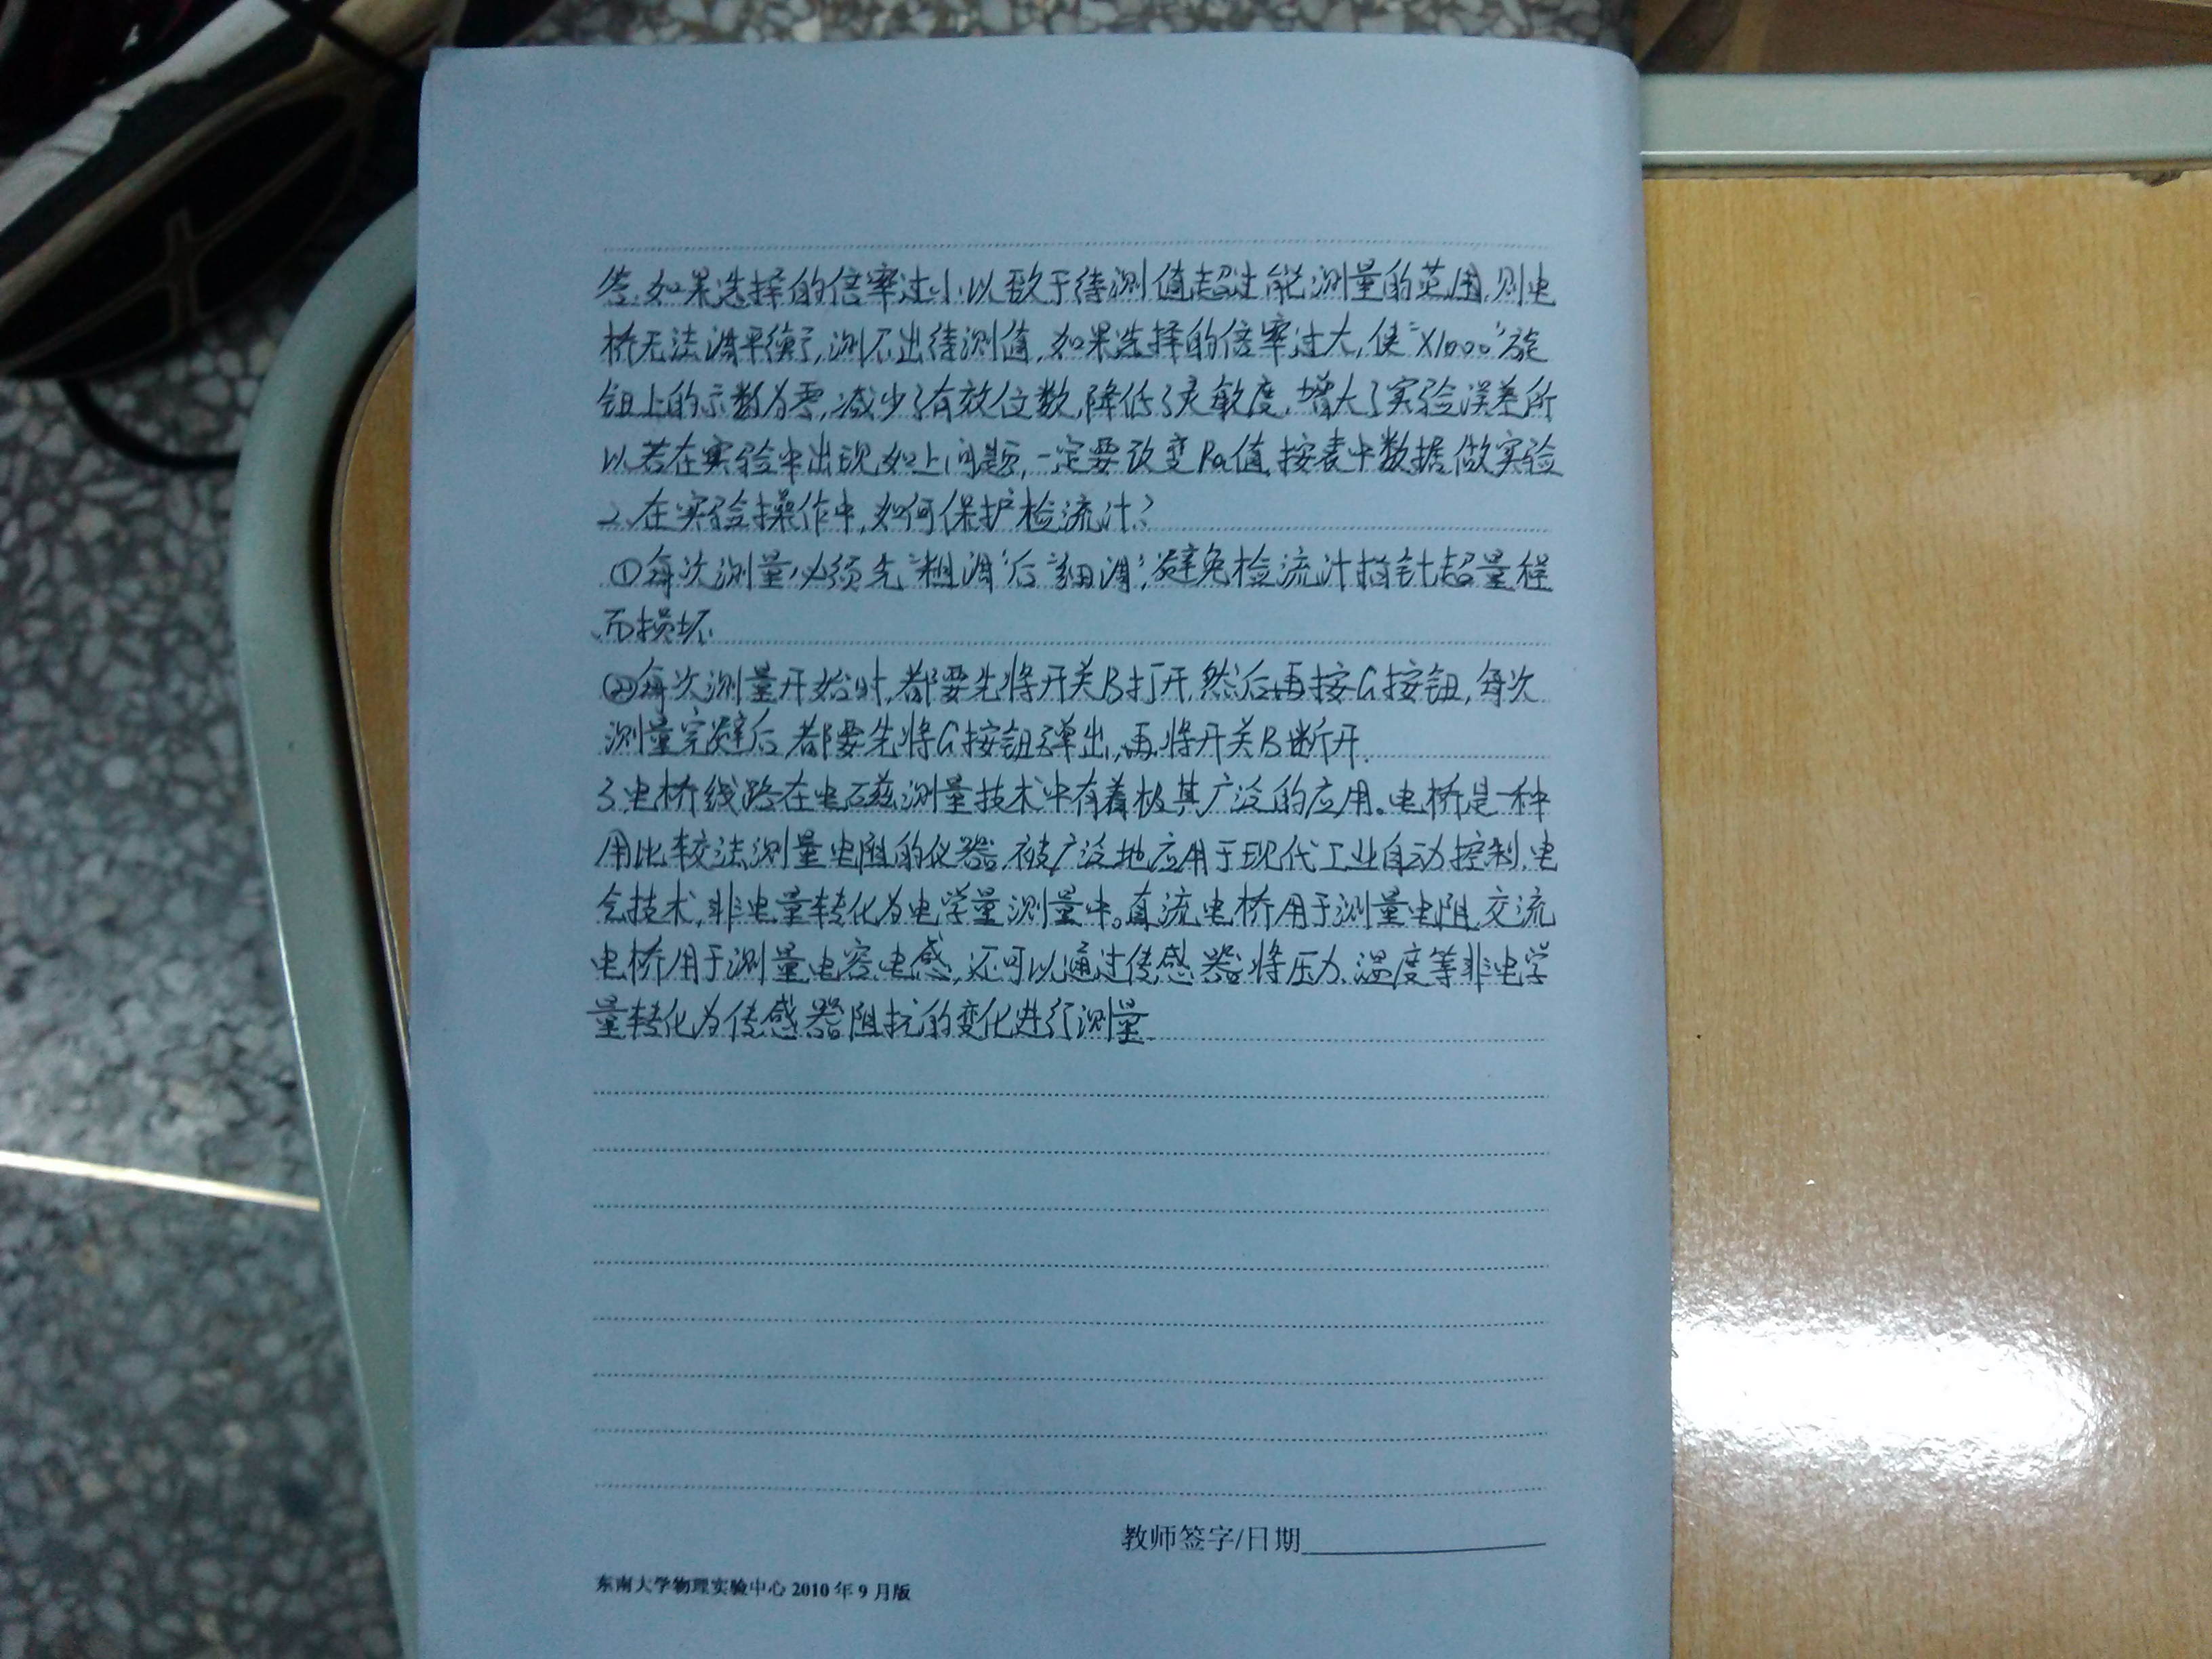 答.如果选择的倍率过小.以致于待测值超过能测量的范围,则电
桥无法调平衡了,测不出待测值.如果选择的倍率过大,使"X1000"旋
钮上的示数为零,减少了有效位数,降低了灵敏度,增大了实验误差所
以若在实验中出现如上问题,一定要改变Ra值,按表中数据做实验
2.在实验操作中,如何保护检流计?
①每次测量必须先"粗调"后"细调",避免检流计指针超量程
而损坏.
②每次测量开始时,都要先将开关B打开,然后再按G按钮,每次
测量完毕后,都要先将G按钮弹出,再将开关B断开.
3.电桥线路在电磁测量技术中有着极其广泛的应用。电桥是一种
用比较法测量电阻的仪器.被广泛地应用于现代工业自动控制,电
会技术,非电量转化为电学量测量中。直流电桥用于测量电阻,交流
电桥用于测量电容,电感,还可以通过传感器将压力、温度等非电学
量转化为传感器阻抗的变化进行测量.
教师签字/日期
东南大学物理实验中心 2010 年 9 月版